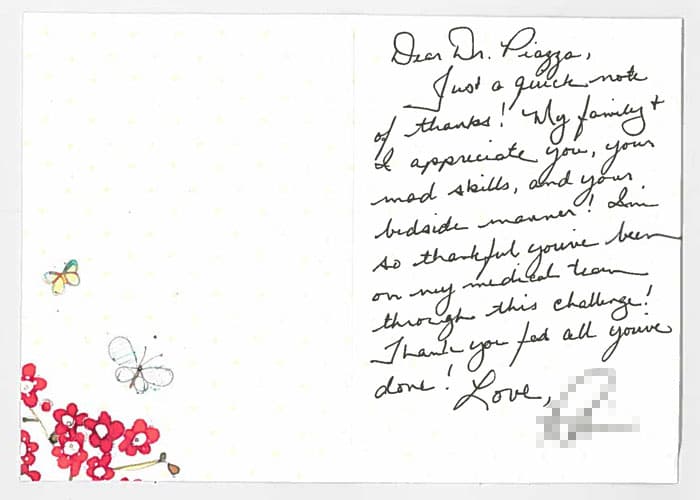 Dear Dr. Piazza,
Just a quick note
of thanks! My family +
I appreciate you, your
mad skills, and your
bedside manner! I'm
so thankful you've been
on my medical team
through this challenge!
Thank you for all you've
done! Love,